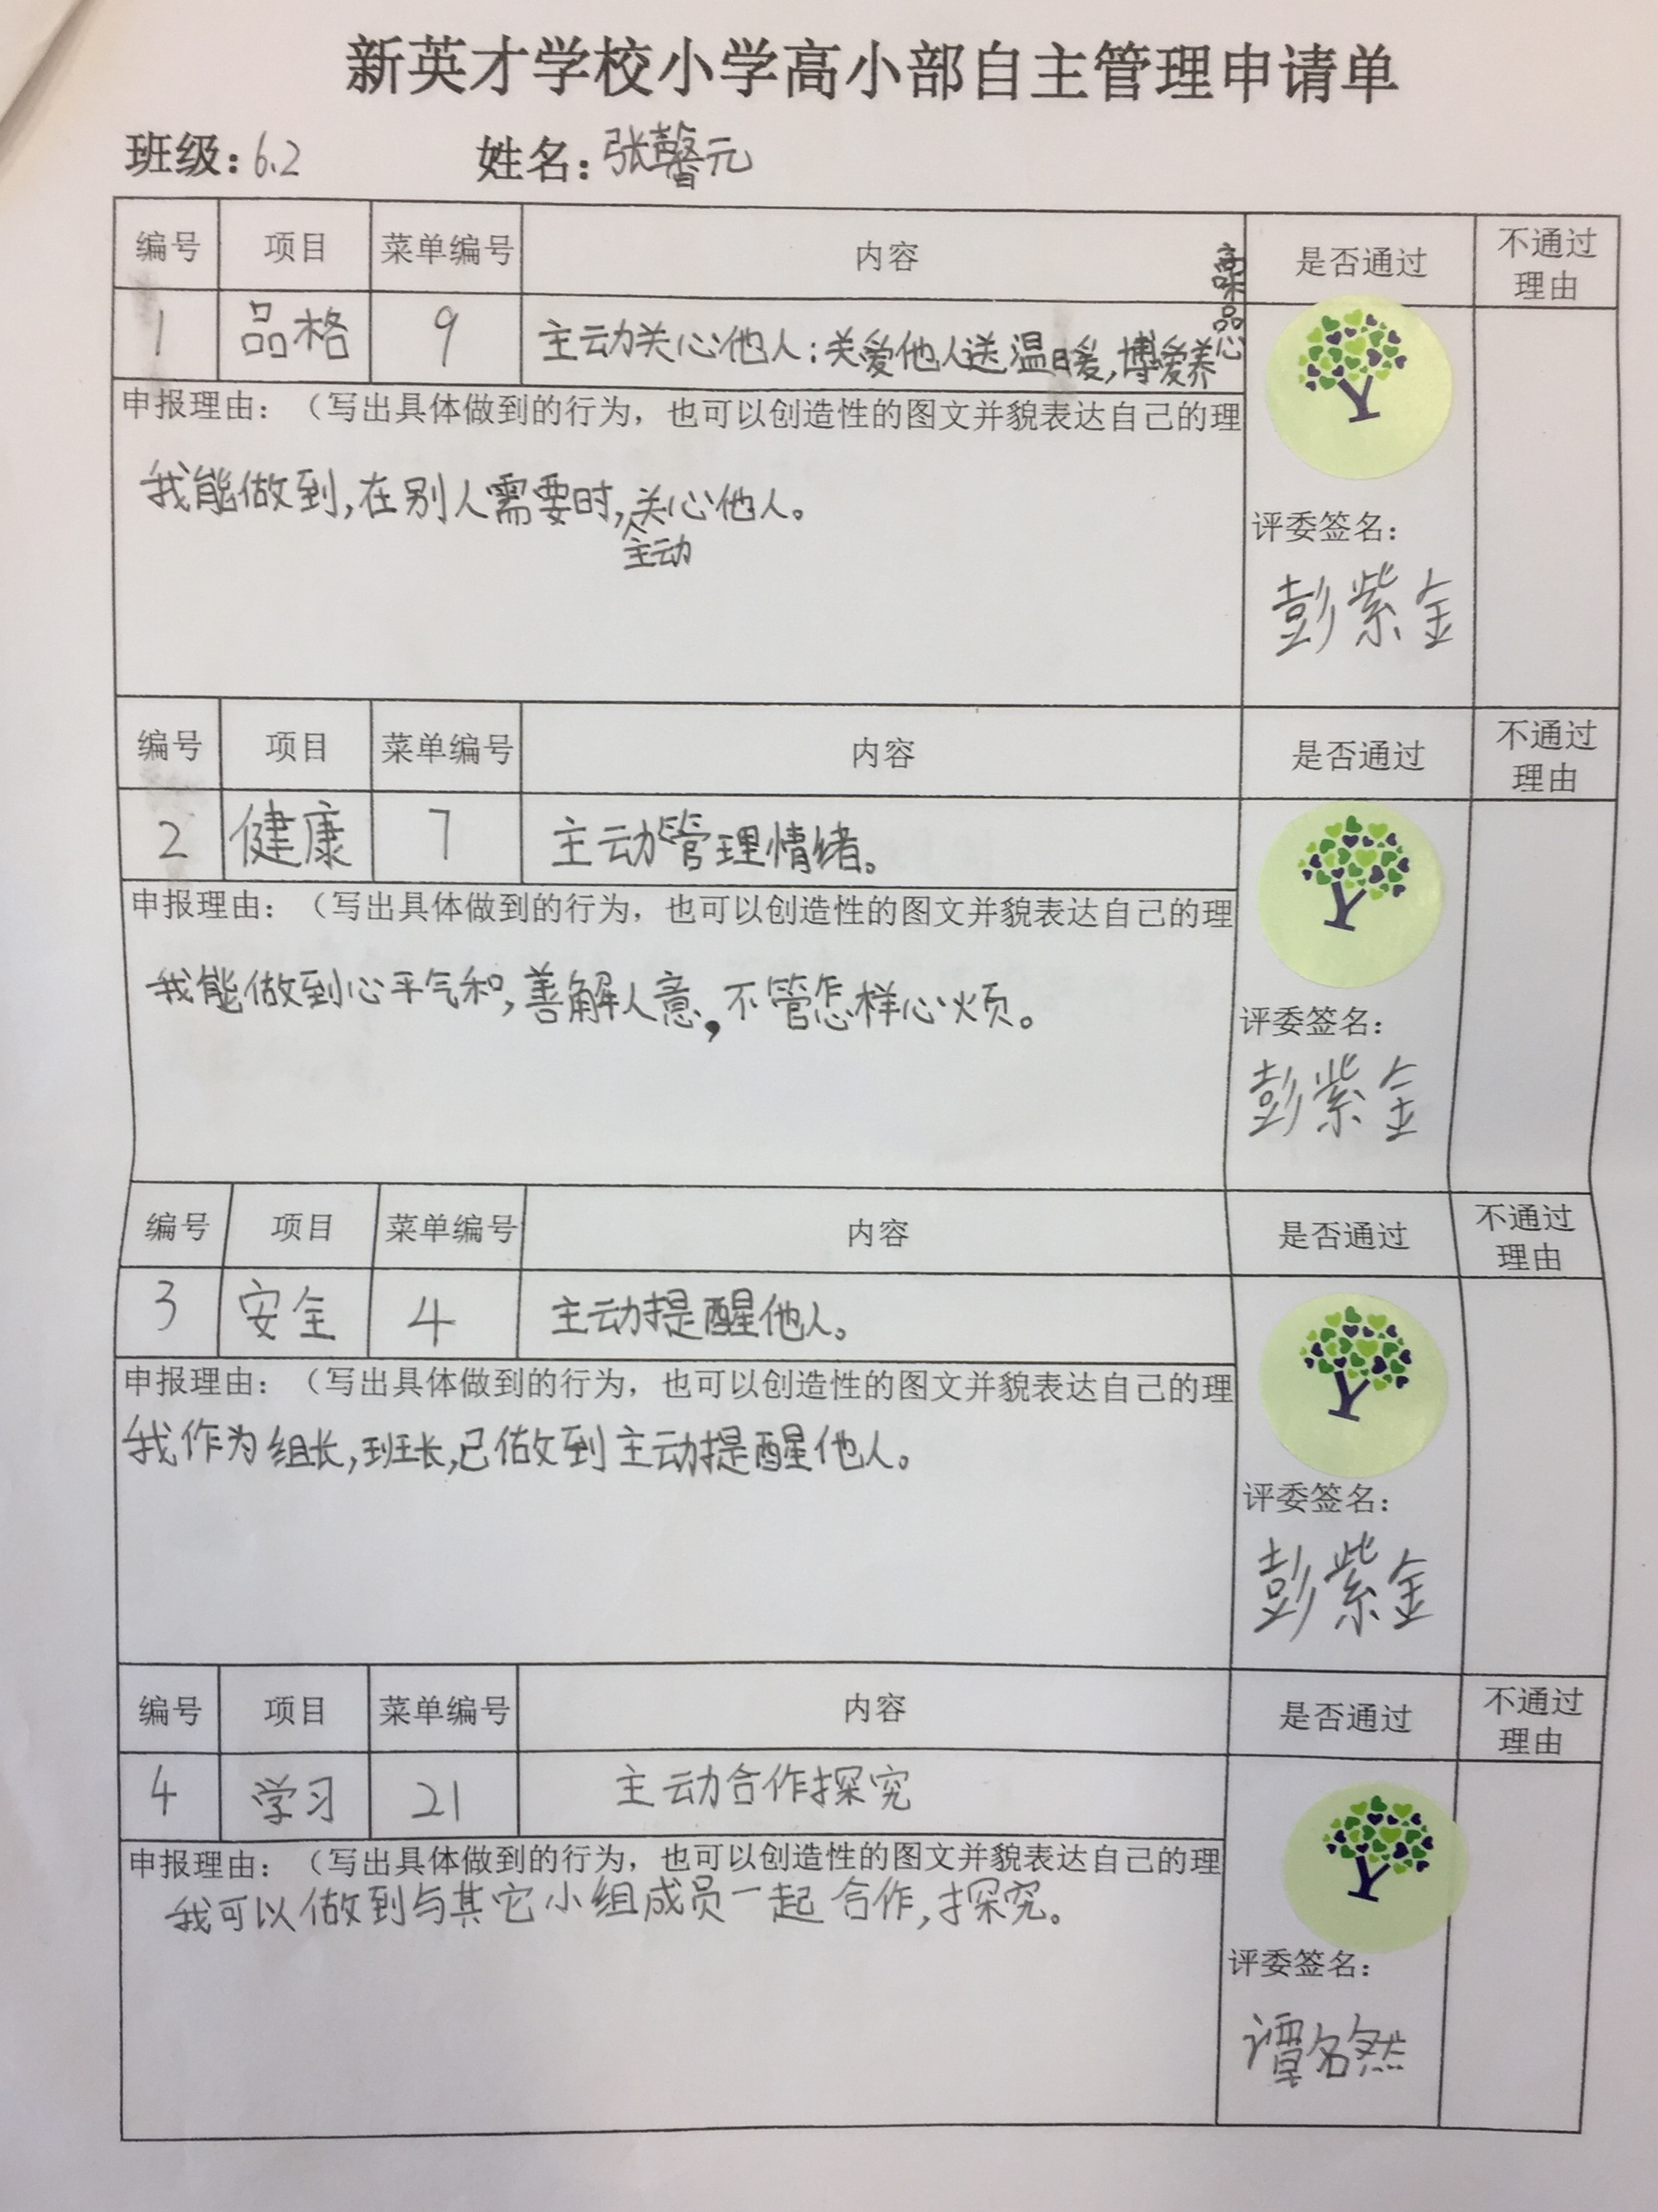 新英才学校小学高小部自主管理申请单
班级：6.2 姓名：张馨元
编号 项目 菜单编号 内容 是否通过 不通过理由
1 品格 9 主动关心他人：关爱他人送温暖，博爱养心品
申报理由：（写出具体做到的行为，也可以创造性的图文并貌表达自己的理
我能做到，在别人需要时，主动关心他人。
评委签名：
彭紫金
编号 项目 菜单编号 内容 是否通过 不通过理由
2 健康 7 主动管理情绪。
申报理由：（写出具体做到的行为，也可以创造性的图文并貌表达自己的理
我能做到心平气和，善解人意，不管怎样心烦。
评委签名：
彭紫金
编号 项目 菜单编号 内容 是否通过 不通过理由
3 安全 4 主动提醒他人。
申报理由：（写出具体做到的行为，也可以创造性的图文并貌表达自己的理
我作为组长，班长，已做到主动提醒他人。
评委签名：
彭紫金
编号 项目 菜单编号 内容 是否通过 不通过理由
4 学习 21 主动合作探究
申报理由：（写出具体做到的行为，也可以创造性的图文并貌表达自己的理
我可以做到与其它小组成员一起合作，探究。
评委签名：
谭名然